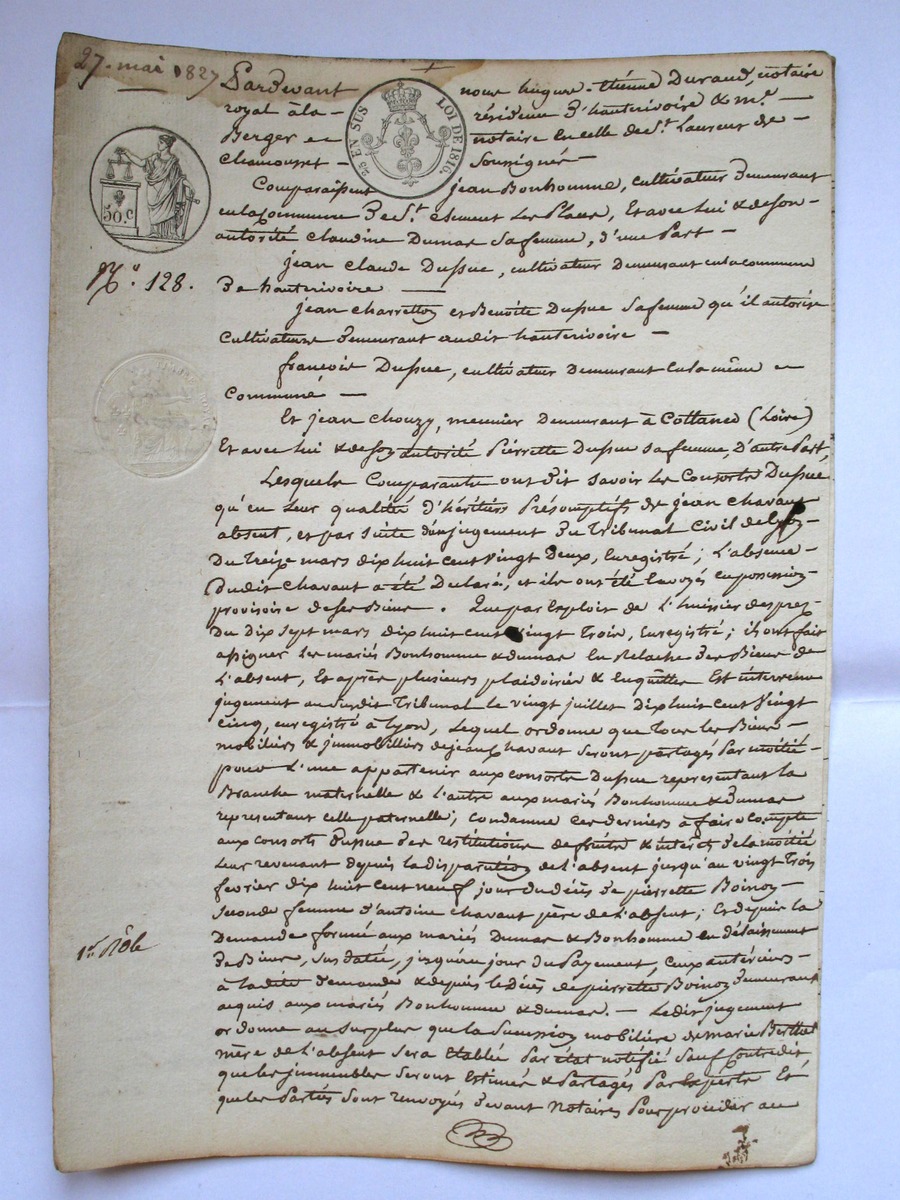 27. mai 1827
Pardevant nous hugue-thénne Durand, notaire
royal à la résidence d'hauterivoire & Me
Berger notaire en celle de St. Laurent de
Chamousset Soussignés
25 EN SUS LOI DE 1816.
50. C
Comparaissent jean Bonhomme, cultivateur demeurant
en la commune de St. clement Les Places, Et avec Lui & de son
autorité Claudine Dumas sa femme, d'une Part
No. 128.
jean Claude Dupuc, cultivateur demeurant en la commune
de hauterivoire
jean charretton et Benoite Dupuc sa femme qu'il autorise
Cultivateurs demeurant audit hauterivoire
françois Dupuc, cultivateur demeurant en la même
Commune
Et jean Chouzy, meunier demeurant à Cottance (Loire)
Et avec lui & de son autorité Pierrette Dupuc sa femme, D'autre Part,
Lesquels Comparants ont dit savoir Les Consorts Dupuc
qu'en Leur qualité d'héritiers Présomptifs de jean Chavant
absent, et par suite d'un jugement du Tribunal Civil de Lyon
Du treize mars dix huit cent vingt Deux, Enregistré; L'absence
Dudit Chavant a été Déclarée, et ils ont été Envoyés en possession
provisoire de ses Biens. Que par Exploit de L'huissier desprez
Du dix sept mars dix huit cent vingt Trois, Enregistré; ils ont fait
assigner Les mariés Bonhomme & dumas En Relache des Biens de
L'absent, Et après plusieurs plaidoiries & Enquêtes Est intervenu
jugement au susdit Tribunal le vingt juillet Dix huit Cent Vingt
cinq, enregistré à Lyon, Lequel ordonne que Tous les Biens
mobiliers & jmmobilliers de jean Chavant seront partagés Par moitié
pour L'une appartenir aux consorts Dupuc representant La
Branche maternelle & L'autre aux mariés Bonhomme & Dumas
representant celle paternelle; Condamne ces derniers à faire Compte
aux consorts Dupuc des restitutions de fruits & interets de la moitié
Leur revenant depuis la disparution de l'absent jusqu'au vingt Trois
fevrier dix huit cent neuf jour du décès de pierrette Boinon
seconde femme d'antoine chavant père de L'absent; Et depuis la
Demande formée aux mariés Dumas & Bonhomme en délaissement
de Biens, sus datée, jusqu'au jour du Payement, Ceux antérieurs
1er. Rôle
à ladite demande & depuis le décès de pierrette Boinon demeurant
acquis aux mariés Bonhomme & dumas. — Ledit jugement
ordonne au surplus que la Succession mobilière de marie Berthet
mère de L'absent sera Etablie Par état notifié sauf Contredit,
que les jmmeubles seront Estimés & Partagés Par Experts Et
que les Parties sont renvoyés devant Notaires Pour proceder au